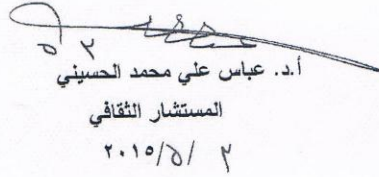 أ.د. عباس علي محمد الحسيني
المستشار الثقافي
٢٠١٥/٥/ ٣